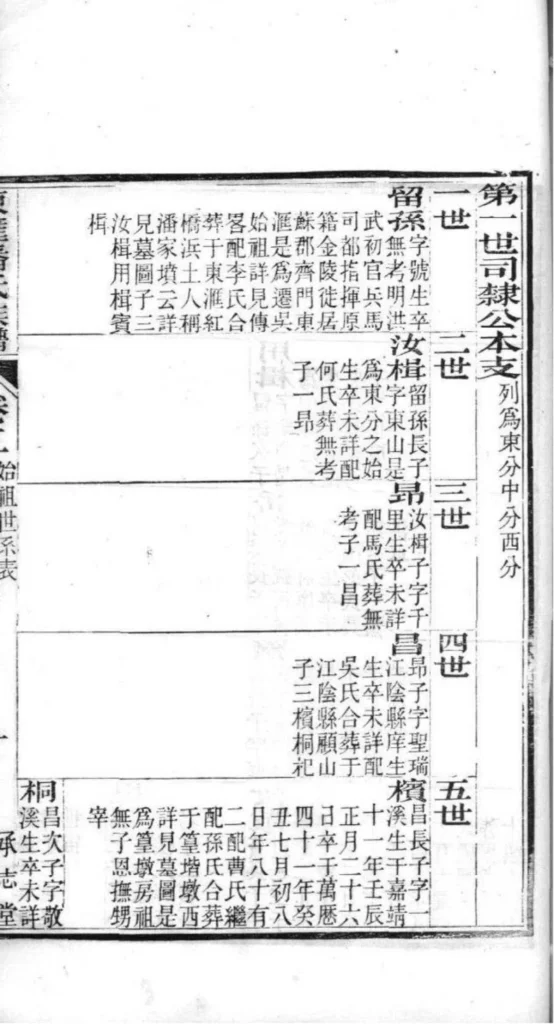 第一世司隸公本支
列爲東分中分西分
一世
留孫字號生卒
無考明洪
武初官兵馬
司都指揮原
籍金陵徙居
蘇郡齊門東
滙是爲遷吳
始祖詳見傳
畧配李氏合
葬于東滙紅
橋浜土人稱
潘家墳云詳
見墓圖子三
汝楫用楫賓
楫
二世
汝楫留孫長子
字東山是
爲東分之始
生卒未詳配
何氏葬無考
子一昂
三世
昂汝楫子字千
里生卒未詳
配馬氏葬無
考子一昌
四世
昌昂子字聖瑞
江陰縣庠生
生卒未詳配
吳氏合葬于
江陰縣顧山
子三檳桐祀
五世
檳昌長子字一
溪生于嘉靖
十一年壬辰
正月二十六
日卒于萬歷
四十一年癸
丑七月初八
日年八十有
二配曹氏繼
配孫氏合葬
于篁墩西
詳見墓圖是
爲篁墩房祖
無子恩撫甥
宰
桐昌次子字敬
溪生卒未詳
氏族譜
始祖世系表
一
承志堂